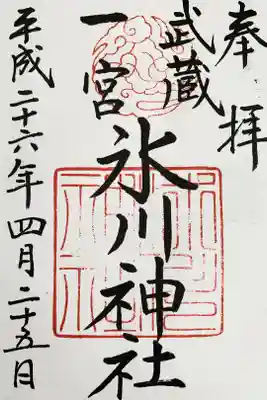 奉拝
武蔵
一宮
氷川神社
平成二十六年四月二十五日